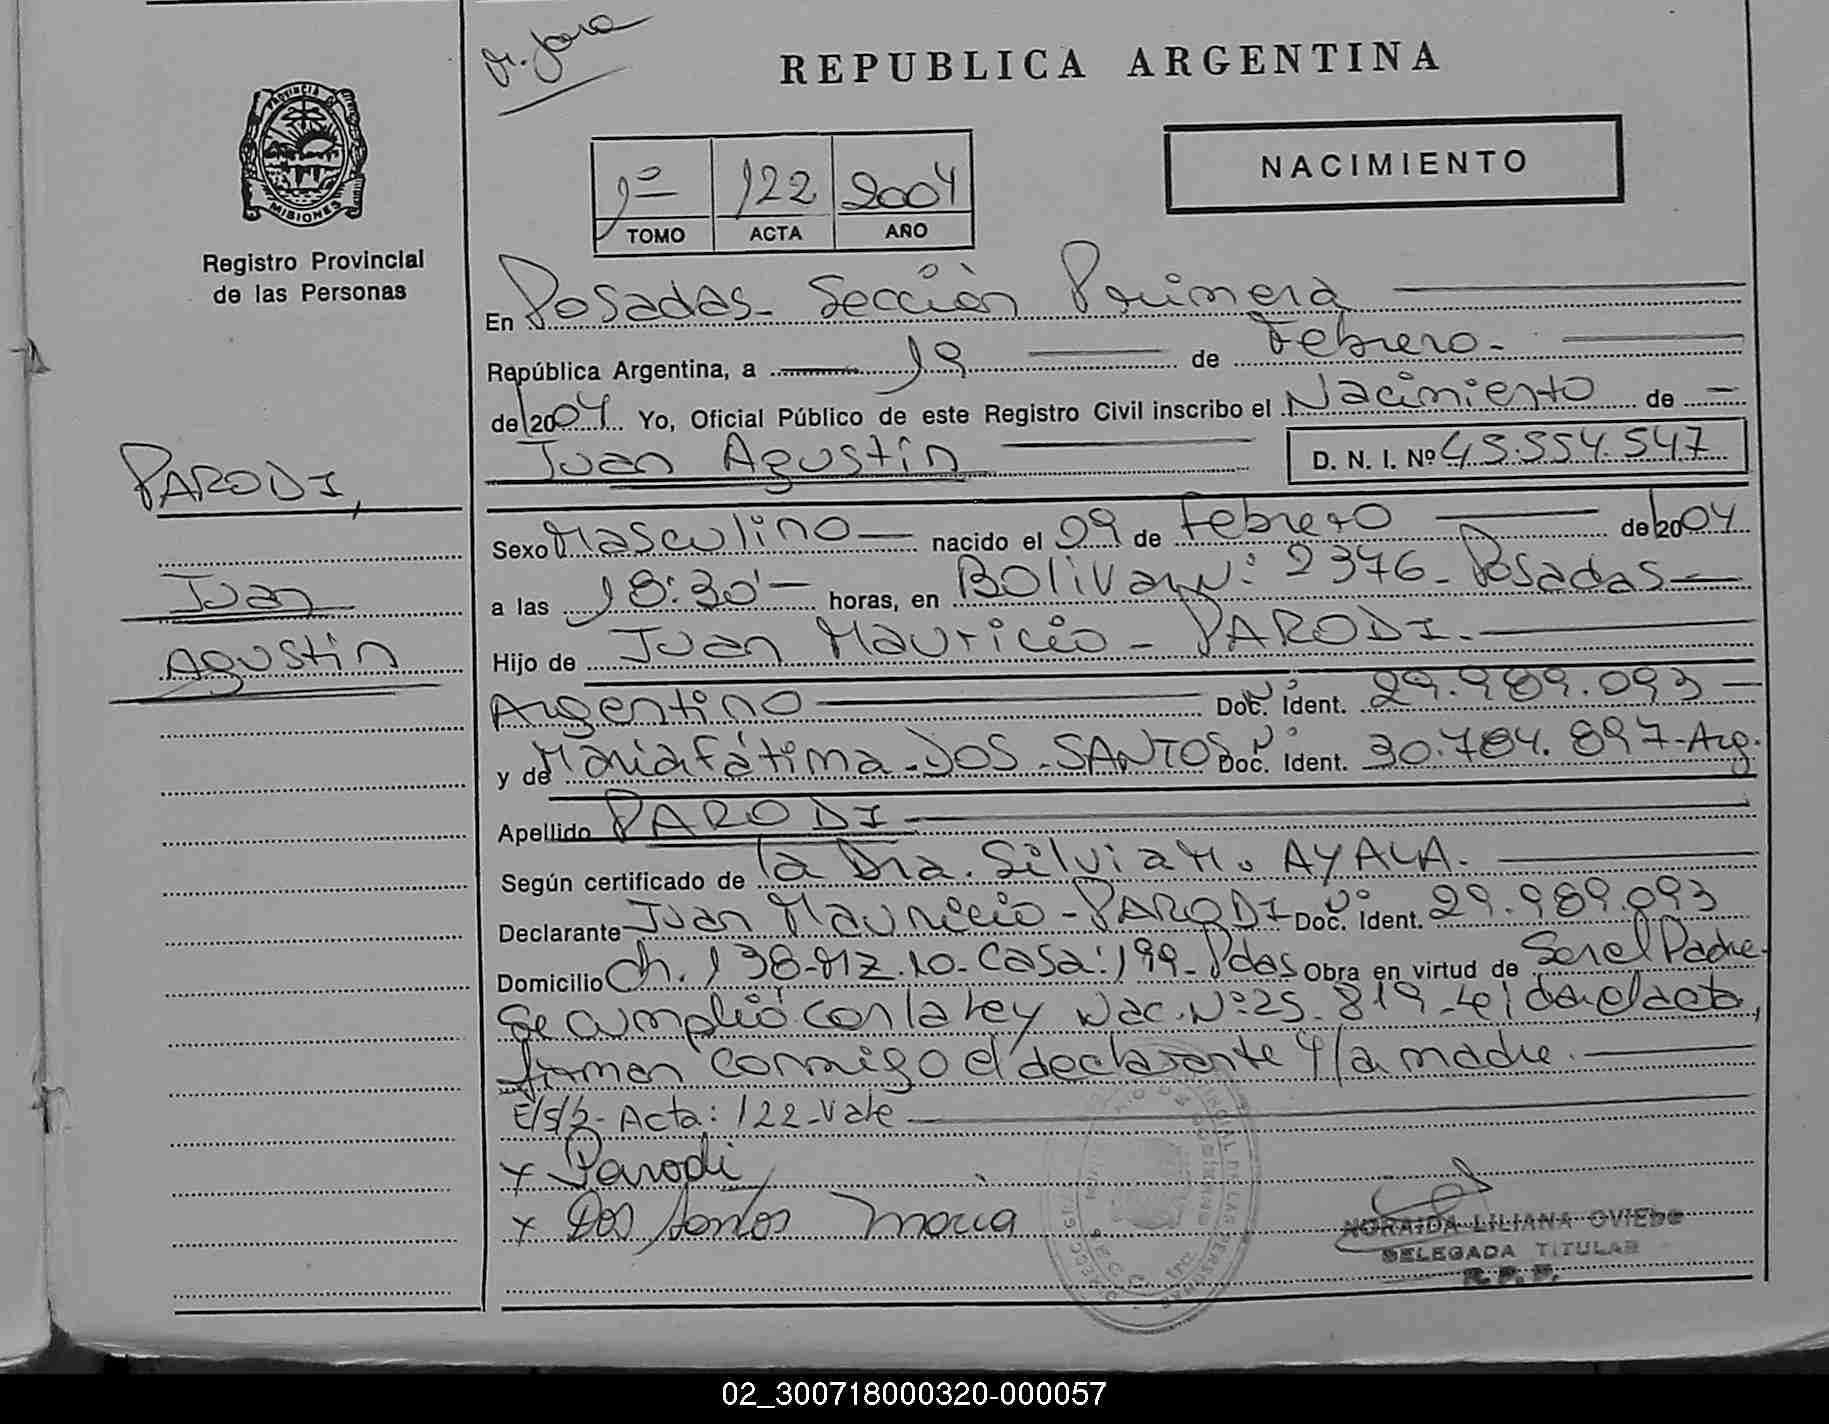 REPUBLICA ARGENTINA
PROVINCIA DE
MISIONES
Registro Provincial
de las Personas
NACIMIENTO
1º 122 2004
TOMO ACTA AÑO
En Posadas - Sección Primera
República Argentina, a 19 de Febrero -
de 2004 Yo, Oficial Público de este Registro Civil inscribo el Nacimiento de -
Juan Agustín D. N. I. Nº 45.554.547
PARODI,
Juan
Agustin
Sexo Masculino nacido el 09 de Febrero de 2004
a las 18:30' horas, en Bolivar Nº: 2376 - Posadas -
Hijo de Juan Mauricio - PARODI.
Argentino Doc. Nº Ident. 29.989.093
y de Maria Fátima - DOS - SANTOS Doc. Nº Ident. 30.784.897 - Arg.
Apellido PARODI
Según certificado de la Dra. Silvia M. AYALA.
Declarante Juan Mauricio - PARODI Doc. Nº Ident. 29.989.093
Domicilio Ch. 138 - Mz. 10 - Casa: 199 - Pdas Obra en virtud de Ser el Padre.
Se cumplió con la Ley Nac. Nº: 25.819 - Leida el acta,
firman conmigo el declarante y la madre.
E/s/b - Acta: 122 - Vale
x Parodi
x Dos Santos Maria
NORAIDA LILIANA OVIEDO
DELEGADA TITULAR
R. P. P.
02_300718000320-000057